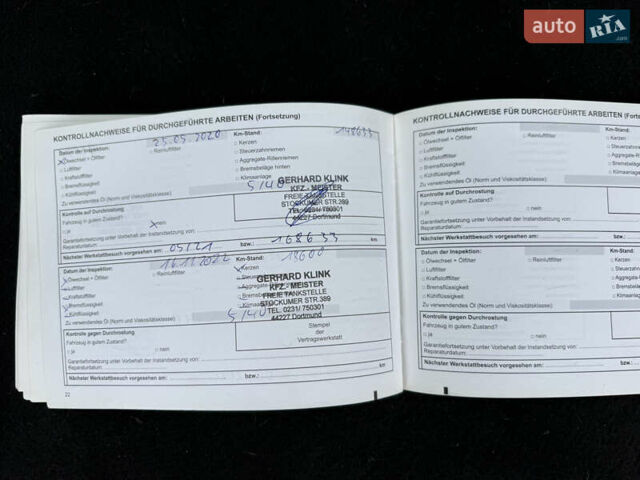 auto RIA.com
KONTROLLNACHWEISE FÜR DURCHGEFÜHRTE ARBEITEN (Fortsetzung)
Datum der Inspektion: 25.05.2020 Km-Stand: 148633
Ölwechsel + Ölfilter Reinluftfilter Kerzen
Luftfilter Steuerzahnriemen
Kraftstofffilter Aggregate-Rillenriemen
Bremsflüssigkeit Bremsbeläge hinten
Kühlflüssigkeit Klimaanlage
Zu verwendendes Öl (Norm und Viskositätsklasse) 5/40
GERHARD KLINK
KFZ. - MEISTER
FREIE TANKSTELLE
STOCKUMER STR.389
TEL. 0231/ 750301
44227 Dortmund
Kontrolle auf Durchrostung
Fahrzeug in gutem Zustand?
ja nein
Garantiefortsetzung unter Vorbehalt der Instandsetzung von:
Reparaturdatum:
Nächster Werkstattbesuch vorgesehen am: 05/21 bzw.: 168633 km
Datum der Inspektion: Km-Stand:
Ölwechsel + Ölfilter Reinluftfilter Kerzen
Luftfilter Steuerzahnriemen
Kraftstofffilter
Bremsflüssigkeit
Kühlflüssigkeit
Zu verwendendes Öl (Norm und Viskositätsklasse) 5/40
GERHARD KLINK
KFZ. - MEISTER
FREIE TANKSTELLE
STOCKUMER STR.389
TEL. 0231/ 750301
44227 Dortmund
Kontrolle gegen Durchrostung
Fahrzeug in gutem Zustand?
ja nein
Stempel
der
Vertragswerkstatt
Garantiefortsetzung unter Vorbehalt der Instandsetzung von:
Reparaturdatum:
Nächster Werkstattbesuch vorgesehen am: bzw.: km
22
KONTROLLNACHWEISE FÜR DURCHGEFÜHRTE ARBEITEN
Datum der Inspektion:
Ölwechsel + Ölfilter Reinluftfilter
Luftfilter
Kraftstofffilter
Bremsflüssigkeit
Kühlflüssigkeit
Zu verwendendes Öl (Norm und Viskositätsklasse)
Kontrolle auf Durchrostung
Fahrzeug in gutem Zustand?
ja nein
Garantiefortsetzung unter Vorbehalt der Instandsetzung von:
Reparaturdatum:
Nächster Werkstattbesuch vorgesehen am: bzw.:
Datum der Inspektion: Km-Stand:
Ölwechsel + Ölfilter Reinluftfilter Kerzen
Luftfilter
Kraftstofffilter
Bremsflüssigkeit
Kühlflüssigkeit
Zu verwendendes Öl (Norm und Viskositätsklasse)
Kontrolle gegen Durchrostung
Fahrzeug in gutem Zustand?
ja nein
Garantiefortsetzung unter Vorbehalt der Instandsetzung von:
Reparaturdatum:
Nächster Werkstattbesuch vorgesehen am: bzw.: